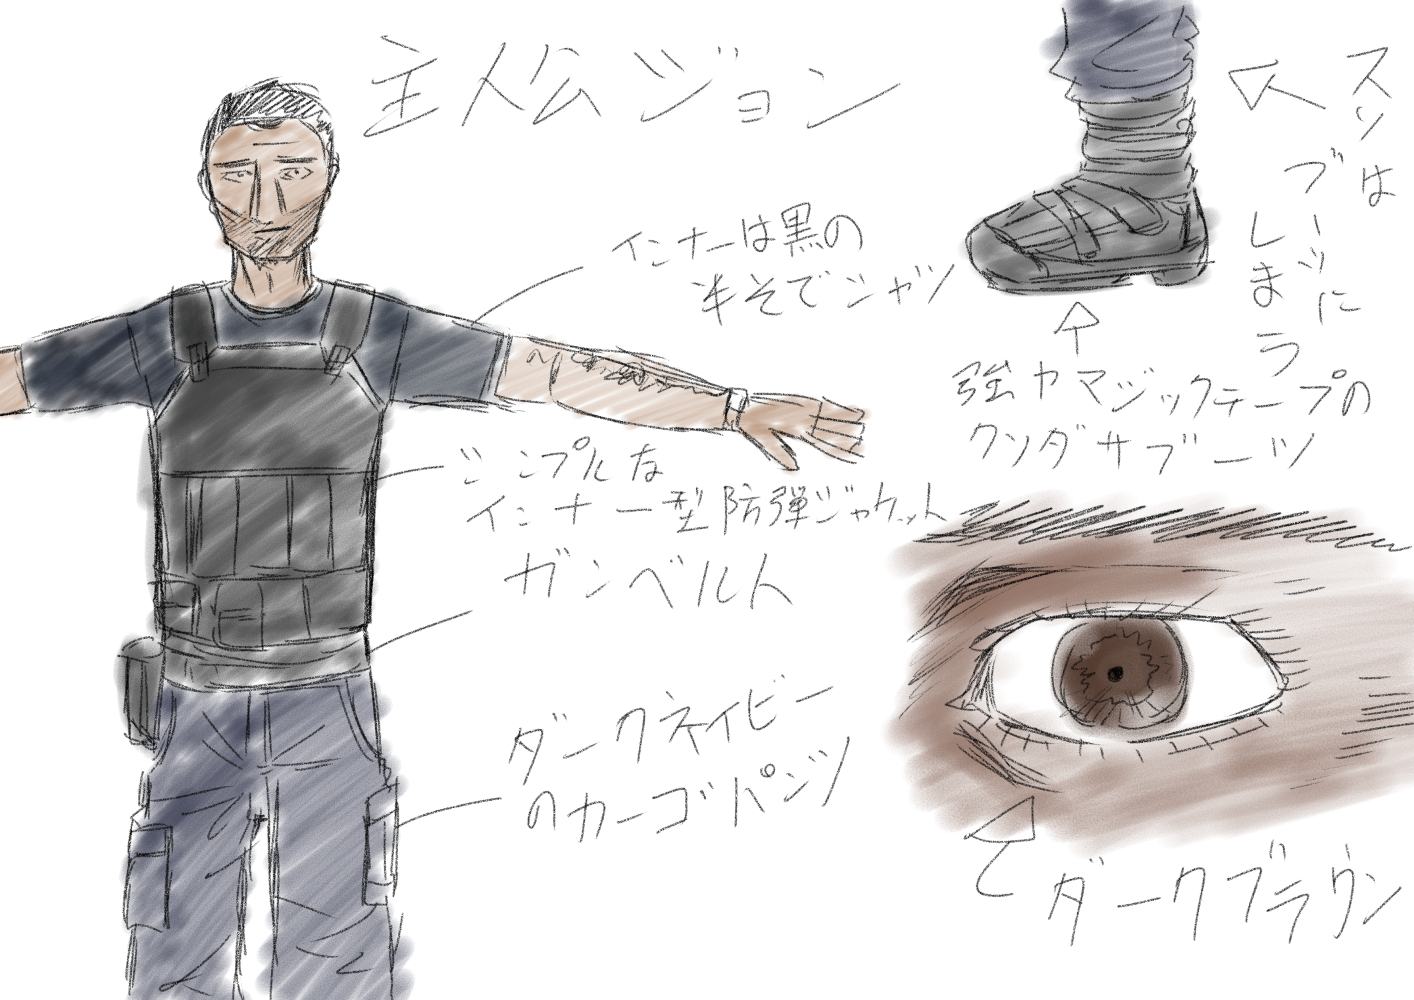 主人公ジョン
インナーは黒の
半そでシャツ
シンプルな
インナー型防弾ジャケット
ガンベルト
ダークネイビー
のカーゴパンツ
スソは
ブーツに
しまう
強ヤマジックテープの
クソダサブーツ
ダークブラウン